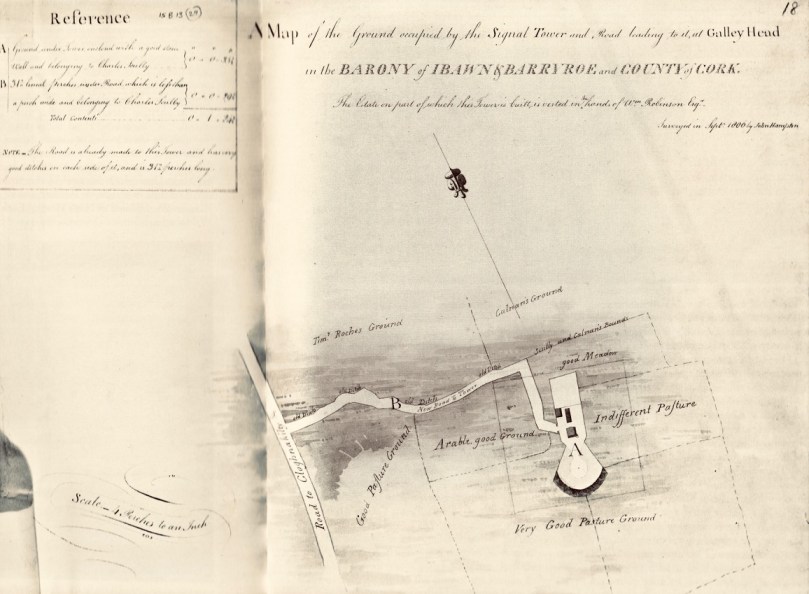 Reference
15 B 15 (29)
18
A Map of the Ground occupied by the Signal Tower and Road leading to it, at Galley Head
in the BARONY of IBAWN & BARRYROE and COUNTY of CORK.
The Estate on part of which this Tower is built, is vested in the hands of Wm. Robinson Esqr.
Surveyed in Septr. 1806 by John Hampton
A Ground under Tower inclosed with a good stone
Wall and belonging to Charles Scully
B 37½ lineal perches under Road which is less than
a perch wide and belonging to Charles Scully
Total Contents
NOTE _ The Road is already made to this Tower and has very
good ditches on each side of it, and is 37½ perches long.
Calnan's Ground
Timy. Roches Ground
Scully and Calnan's Bounds
good Meadow
old Ditch
old Ditch
old Ditch
B
old Ditch
New Road to Tower
Indifferent Pasture
Arable good Ground
A
Good Pasture Ground
Road to Cloghnakilty
Very Good Pasture Ground
Scale _ 4 Perches to an Inch